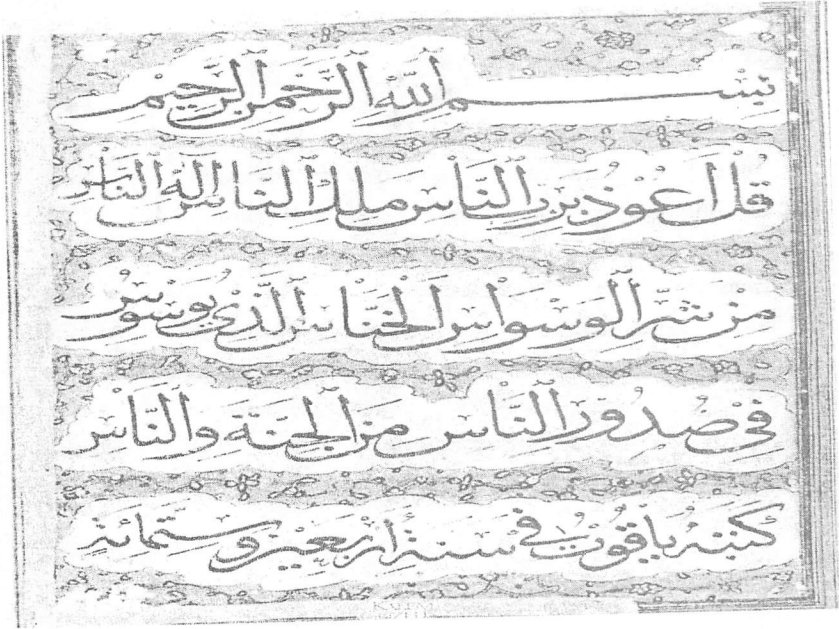 بِسْمِ ٱللَّهِ ٱلرَّحْمٰنِ ٱلرَّحِيمِ
قُلْ أَعُوْذُ بِرَبِّ ٱلنَّاسِ مَلِكِ ٱلنَّاسِ إِلٰهِ ٱلنَّاسِ
مِنْ شَرِّ ٱلْوَسْوَاسِ ٱلْخَنَّاسِ ٱلَّذِيْ يُوَسْوِسُ
فِيْ صُدُوْرِ ٱلنَّاسِ مِنَ ٱلْجِنَّةِ وَٱلنَّاسِ
كتبه ياقوت في سنة أربعين وستمائة